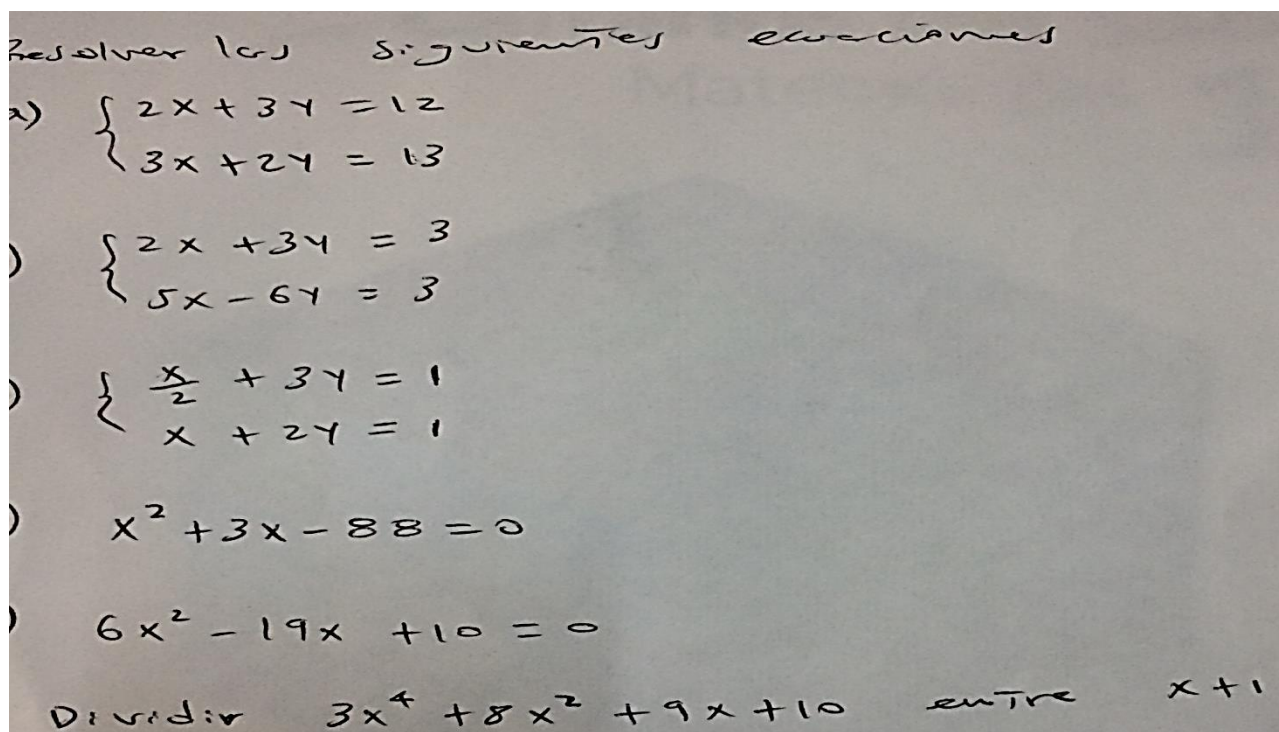 Resolver las siguientes ecuaciones
a) { 2x + 3y = 12
3x + 2y = 13
) { 2x + 3y = 3
5x - 6y = 3
) { x/2 + 3y = 1
x + 2y = 1
) x² + 3x - 88 = 0
) 6x² - 19x + 10 = 0
Dividir 3x⁴ + 8x² + 9x + 10 entre x + 1